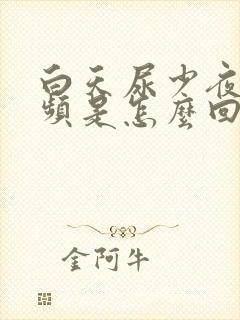 白天尿少夜
頻是怎麼回
金阿牛